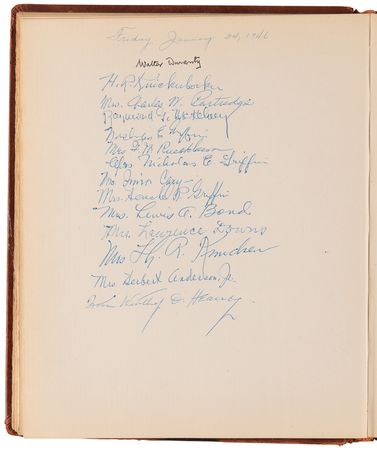 Friday January 24, 1946
Walter Duranty
H. R. Knickerbocker
Mrs. Charles W. Partridge
Raymond
Nicholas E. Griffin
Mrs F. W.
Mrs. Nicholas E. Griffin
Mrs. Irvin Cary
Mrs. P. Griffin
Mrs. Lewis A. Bond
Mrs. Lawrence Downs
Mrs H. R. Knudsen
Mrs Herbert Anderson, Jr.
D. Heaney.